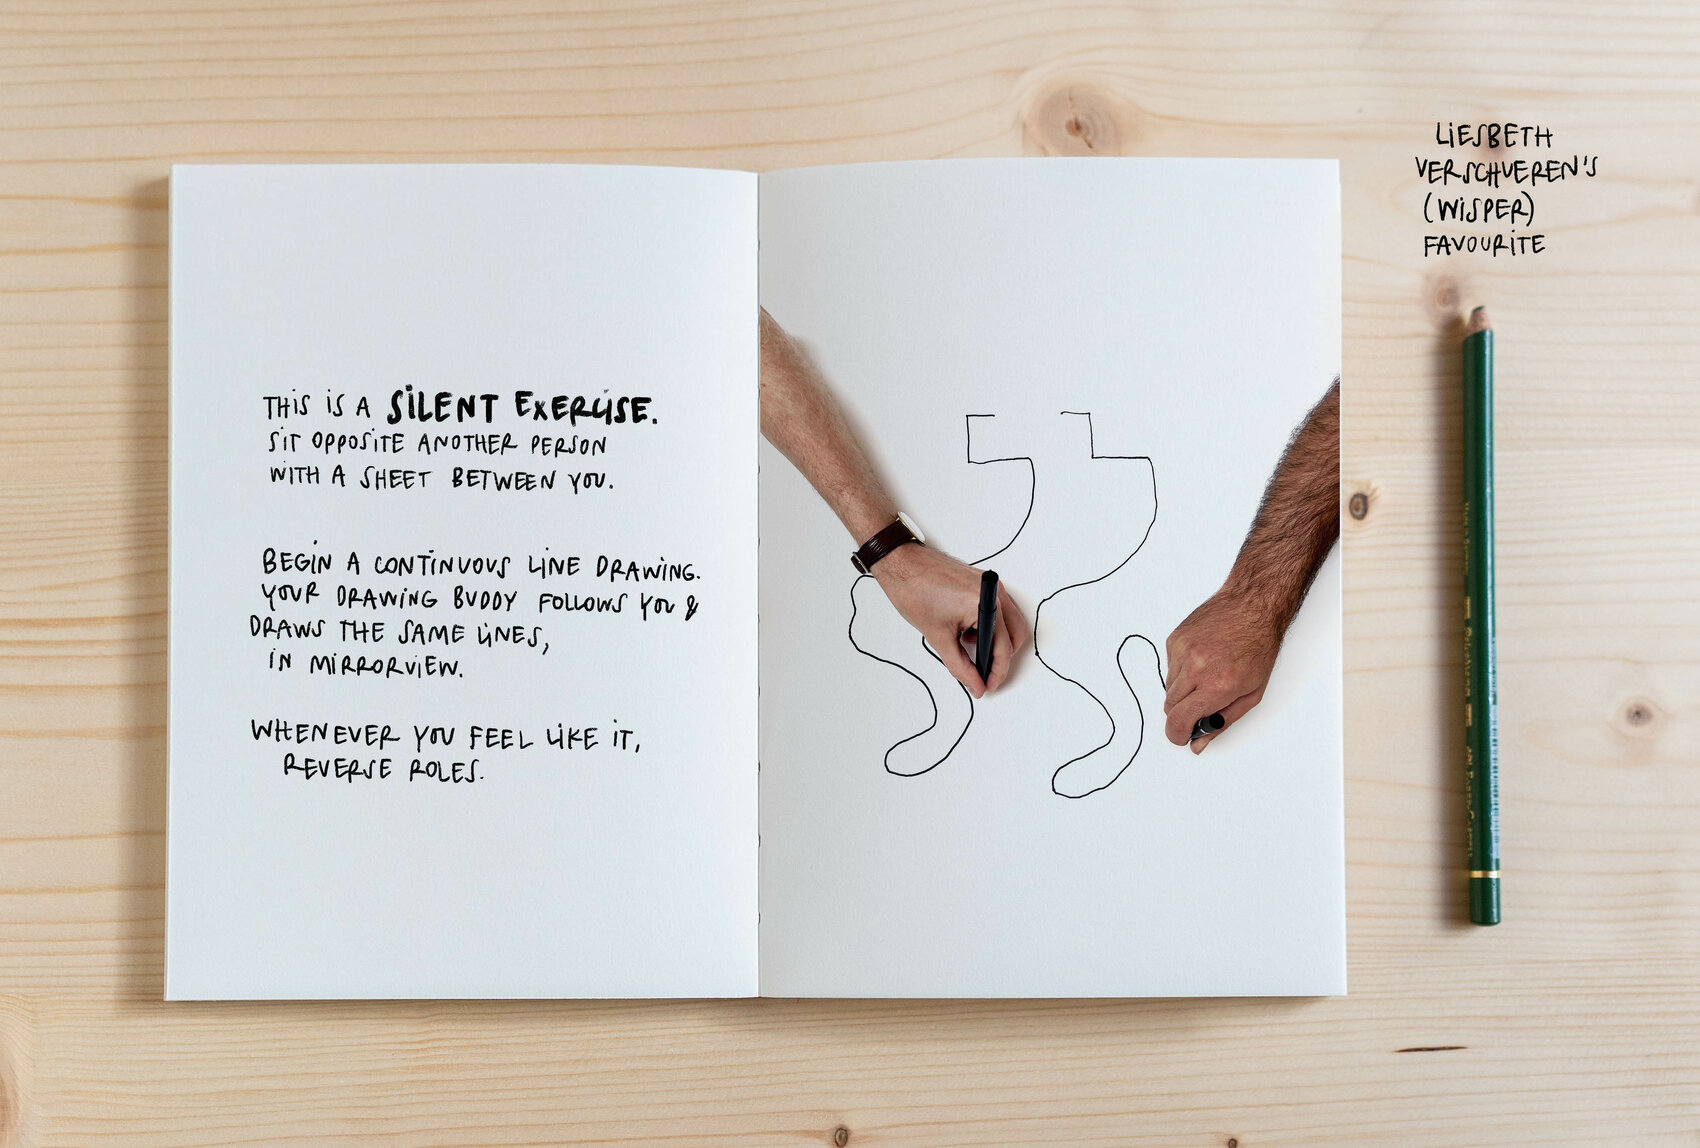 THIS IS A SILENT EXERCISE.
SIT OPPOSITE ANOTHER PERSON
WITH A SHEET BETWEEN YOU.
BEGIN A CONTINUOUS LINE DRAWING.
YOUR DRAWING BUDDY FOLLOWS YOU &
DRAWS THE SAME LINES,
IN MIRRORVIEW.
WHENEVER YOU FEEL LIKE IT,
REVERSE ROLES.
LIESBETH
VERSCHUEREN'S
(WISPER)
FAVOURITE